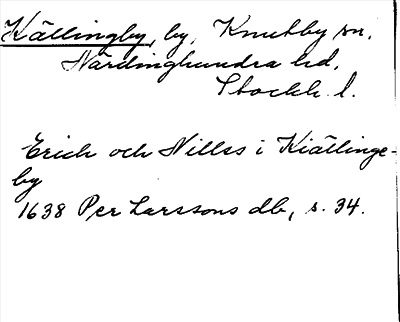 Källingby, by, Knutby sn,
Närdinghundra hd,
Stockh. l.
Erich och Nillss i Kiällinge-
by
1638 Per Larssons db, s. 34.